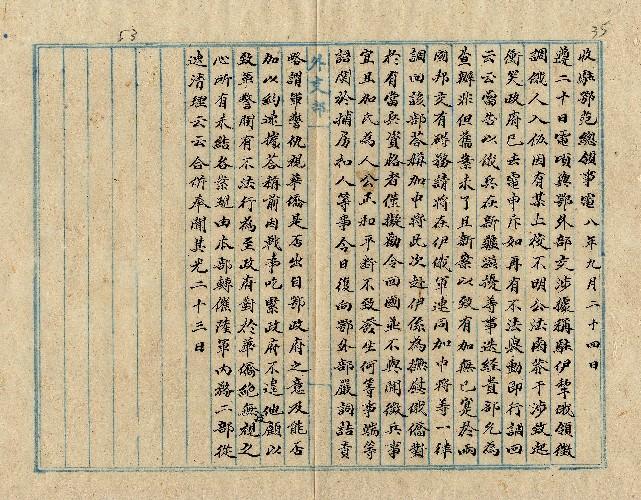 53
35
收駐鄂范總領事電八年九月二十四日
遵二十日電頃與鄂外部交涉據稱駐伊犂俄領徵
調俄人入伍因有某上校不明公法函莽干涉致起
衝突政府已去電申斥如再有不法舉動即行調回
云云當答以俄兵在新疆滋擾等事迭經貴部允為
查辦非但舊案未了且新案以致有加無已實於兩
國邦交有碍務請將在伊俄軍連同加中將等一律
調回該部答稱加中將此次赴伊係為撫慰俄僑對
於有當兵資格者僅擬勸令回國並不與聞徵兵事
宜且加氏為人公正和平斷不致發生何等事端等
語關於捕房和人等事今日復向鄂外部嚴詞詰責
外交部
略謂軍警仇視華僑是否出自鄂政府之意及能否
加以約束據答稱前因戰事吃緊政府不遑他顧以
致軍警間有不法行為至政府對於華僑絕無視之
心所有未結各案經由本部轉催陸軍內務二部從
速清理云云合併奉聞其光二十三日